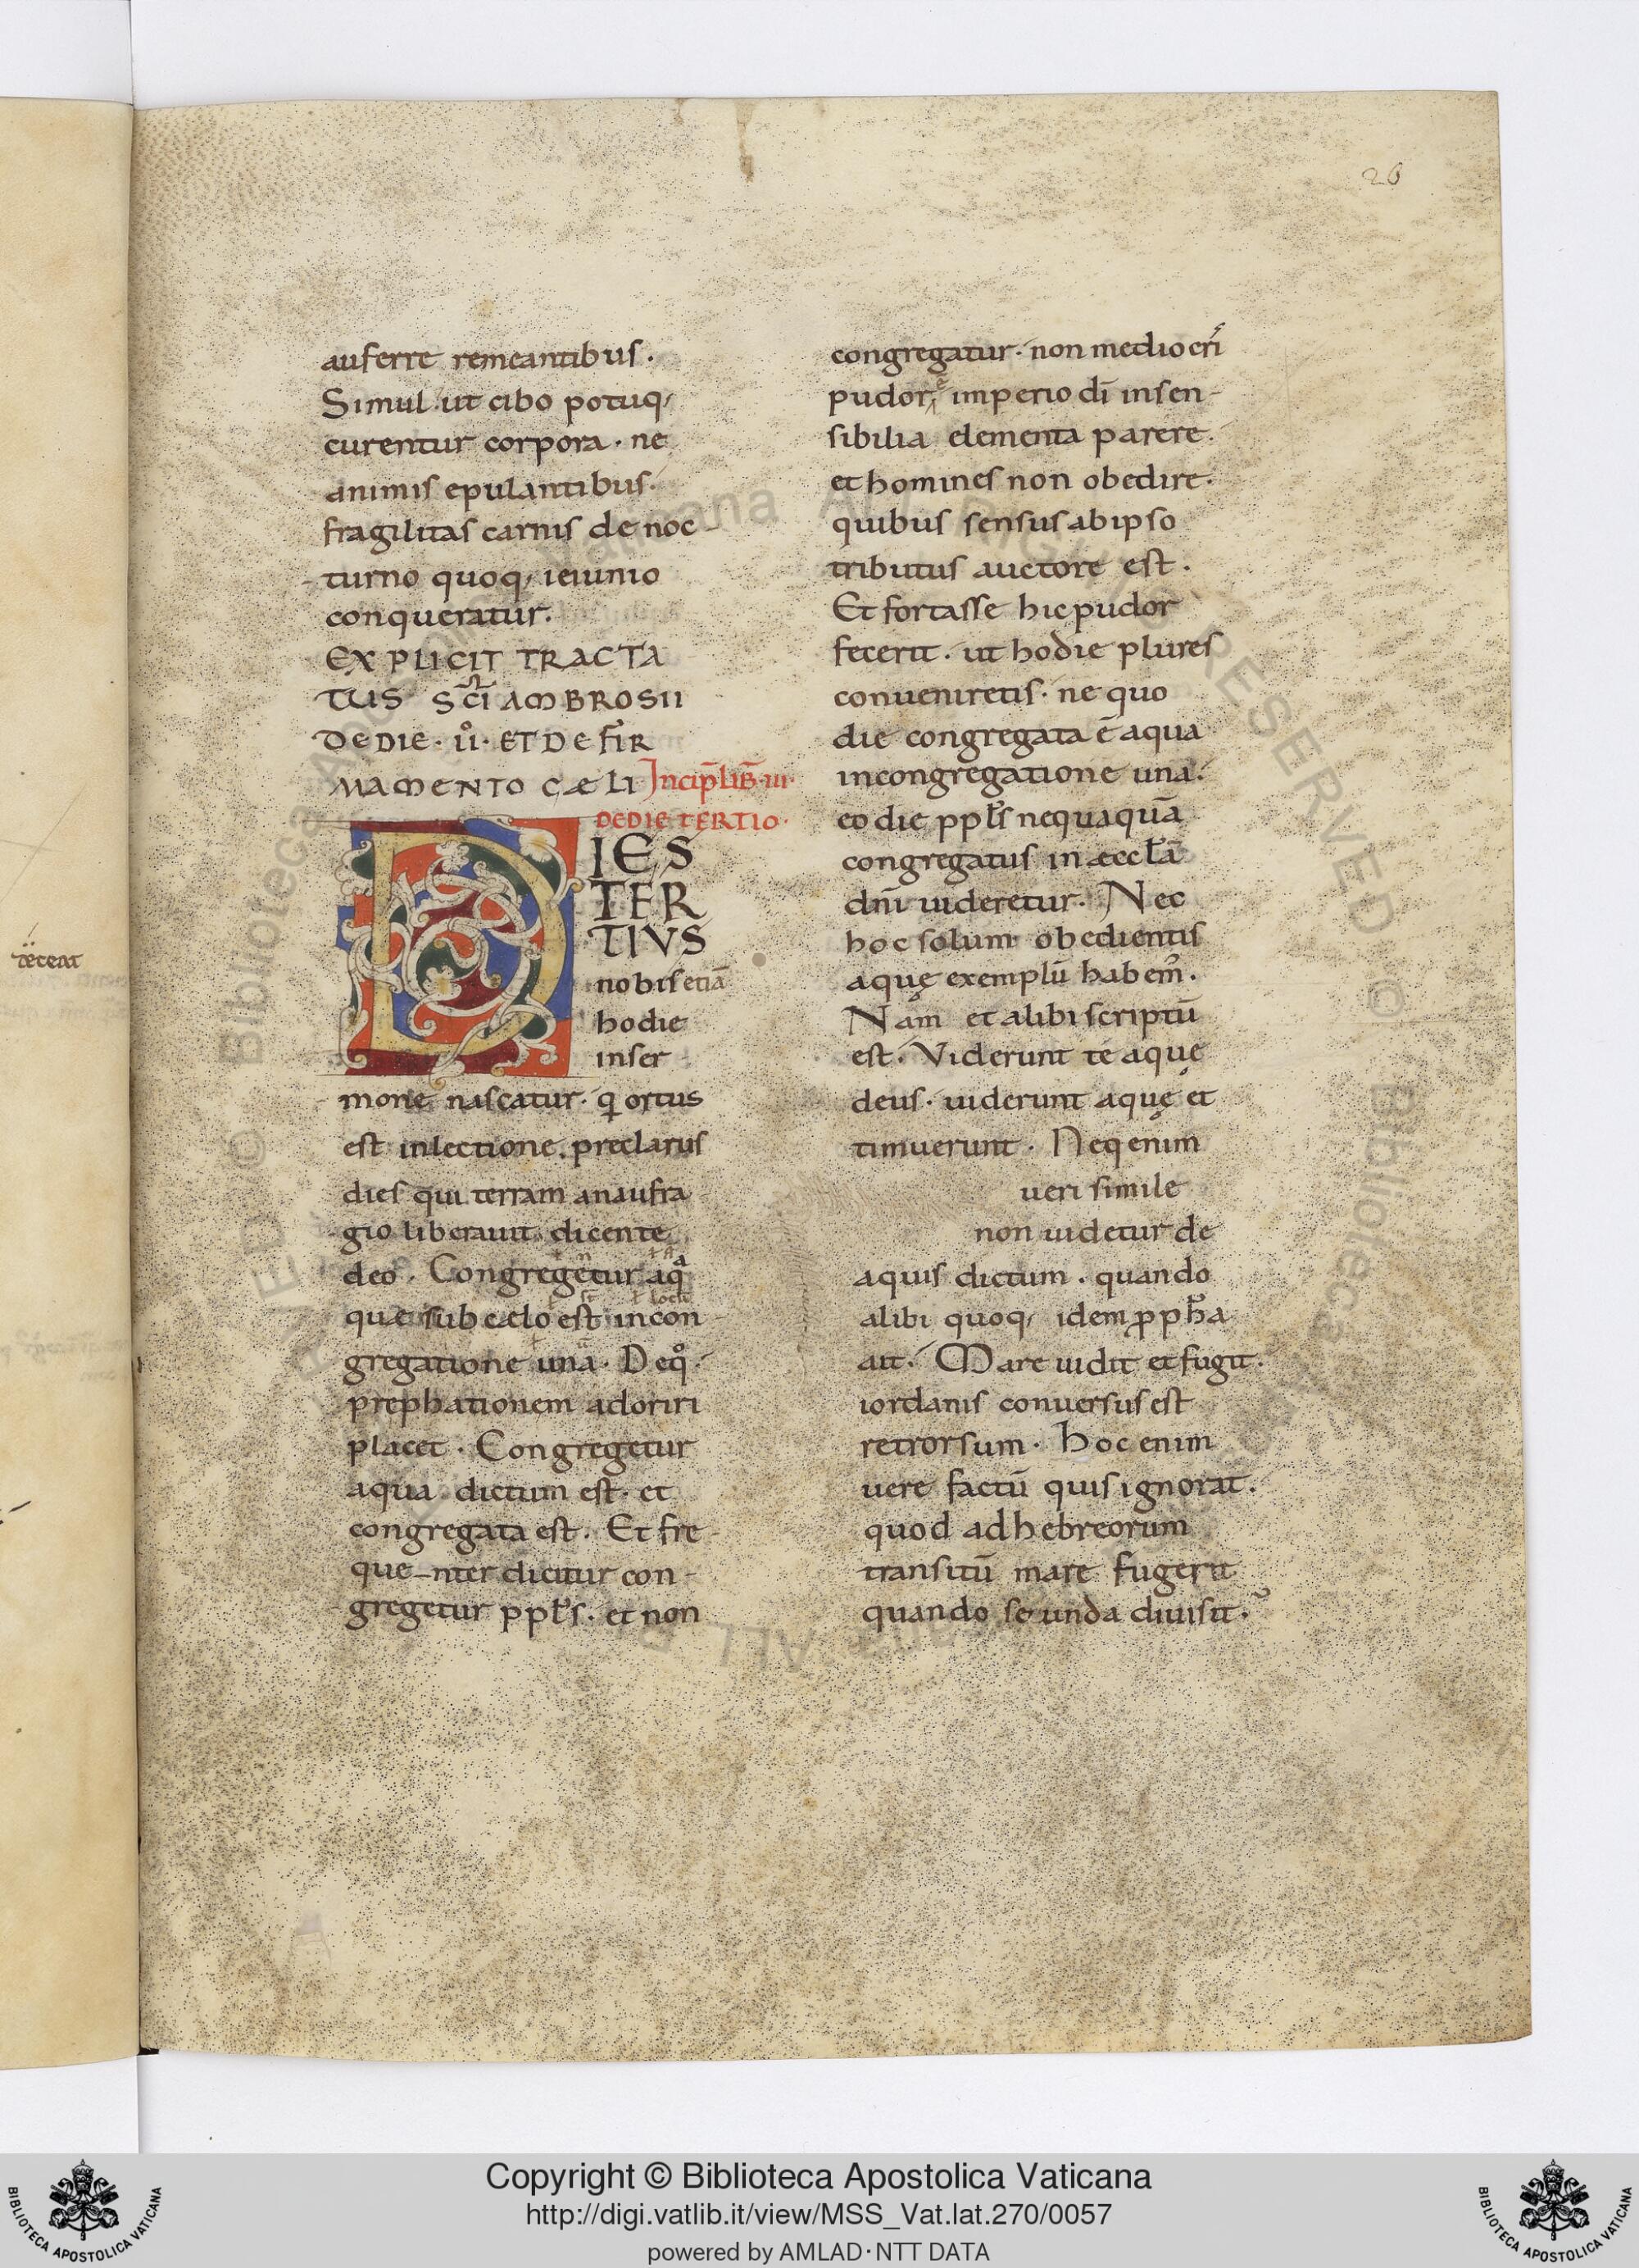 26
auferre remeantibus.
Simul ut cibo potuq;
curentur corpora. ne
animis epulantibus.
fragilitas carnis de noc-
turno quoq; ieiunio
conqueratur.
EXPLICIT TRACTA
TUS SC̄I AMBROSII
DE DIE. IIº. ET DE FIR
MAMENTO CÆLI Incip̄ LIB̄. III.
DE DIE TERTIO.
DIES
TER
TIVS
nobis etiā
hodie
in ser
mone nascatur. q ortus
est in lectione. preclarus
dies qui terram a naufra
gio liberauit. dicente
deo. Congregetur aqa
quæ sub cælo est in con
gregatione una. De qº.
prephationem adoriri
placet. Congregetur
aqua dictum est. et
congregata est. Et fre
que-nter dicitur con-
gregetur ppl̄s. et non
congregatur. non mediocri
pudor, ē imperio dī insen-
sibilia elementa parere.
et homines non obedire.
quibus sensus ab ipso
tributus auctore est.
Et fortasse hic pudor
fecerit. ut hodie plures
conueniretis. ne quo
die congregata ē aqua
in congregatione una.
eo die ppl̄s nequaquā
congregatus in æccl̄a
dn̄i uideretur. Nec
hoc solum obedientis
aquę exemplū habem᾿.
Nam et alibi scriptū
est. Viderunt te aquę
deus. uiderunt aquę et
timuerunt. Neq enim
ueri simile
non uidetur de
aquis dictum. quando
alibi quoq; idem ꝓph̄a
ait. Mare uidit et fugit.
iordanis conuersus est
retrorsum. Hoc enim
uere factū quis ignorat.
quod ad hebreorum
transitū mare fugerit
quando se unda diuisit.
Copyright © Biblioteca Apostolica Vaticana
http://digi.vatlib.it/view/MSS_Vat.lat.270/0057
powered by AMLAD·NTT DATA
BIBLIOTECA APOSTOLICA VATICANA
BIBLIOTECA APOSTOLICA VATICANA